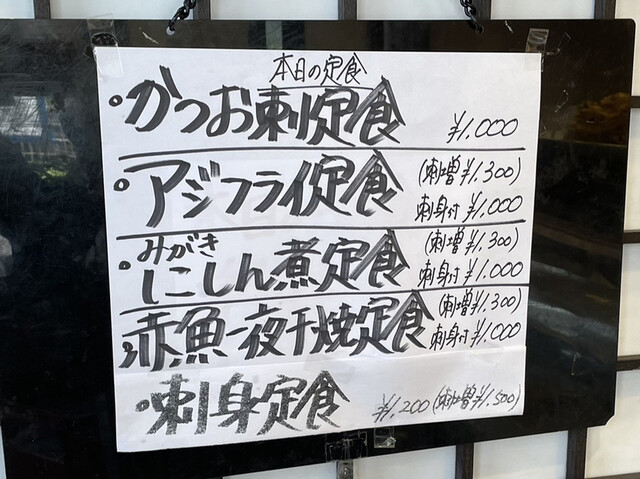 本日の定食
。かつお刺定食 ¥1.000
。アジフライ定食 (刺増¥1.300)
刺身付¥1.000
みがき (刺増¥1.300)
。にしん煮定食 刺身付¥1.000
。赤魚一夜干焼定食 (刺増¥1.300)
刺身付¥1.000
。刺身定食 ¥1.200 (刺増¥1.500)